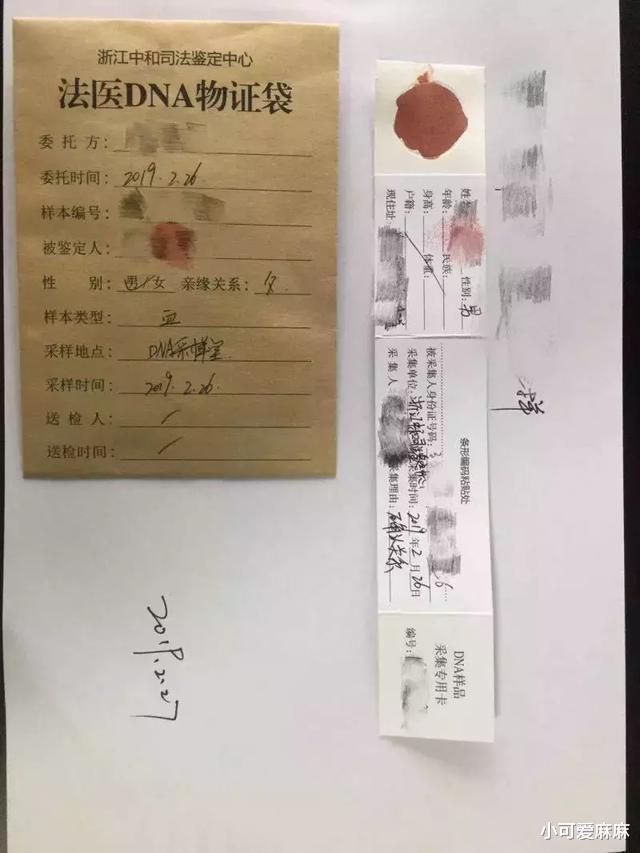 浙江中和司法鉴定中心
法医DNA物证袋
委托方:
委托时间: 2019.2.26
样本编号:
被鉴定人:
性别: 男/女 亲缘关系: 父
样本类型: 血
采样地点: DNA采样室
采样时间: 2019.2.26
送检人: /
送检时间: /
2019.2.27
姓名: 性别: 男
年龄: 民族:
身高: 体重:
户籍:
现住址:
条形编码粘贴处
被采集人身份证号码: 3 6
采集单位: 采集时间: 2019年2月26日
采集人 采集理由: 确认关系
DNA样品
采集专用卡
编号:
小可爱麻麻